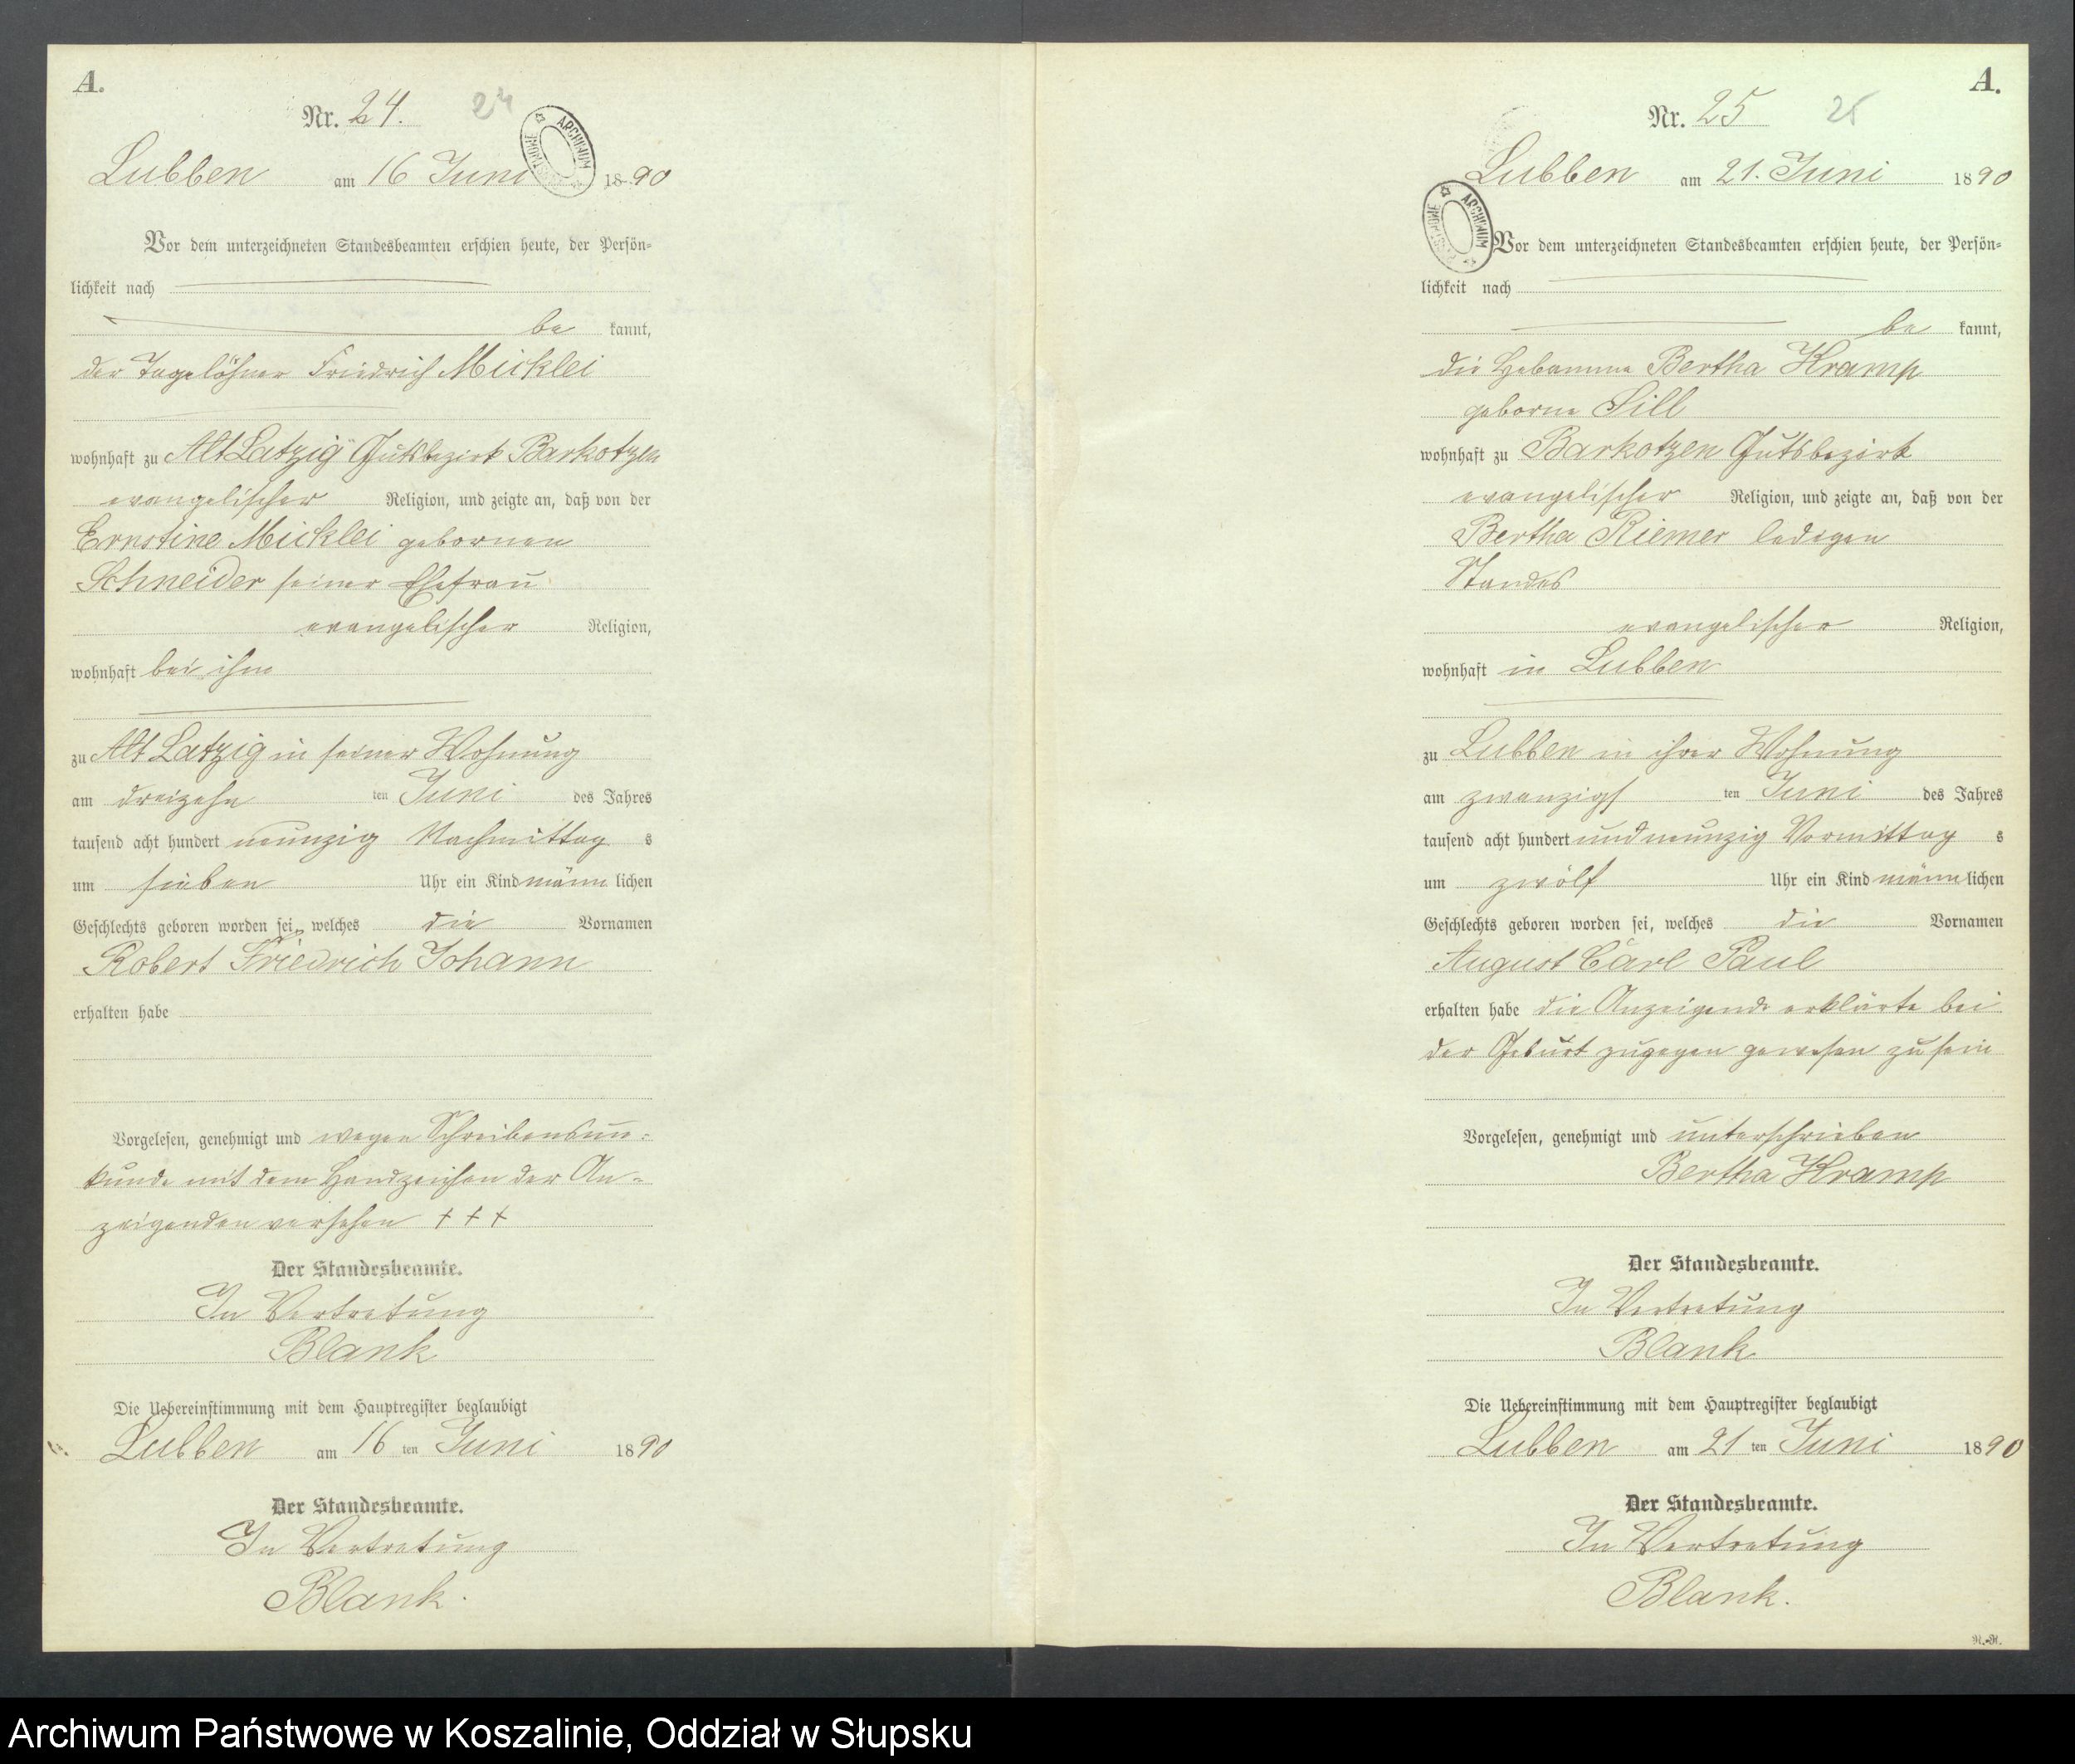 A.
Nr. 24.
24
ARCHIWUM
Lubben am 16 Juni 1890
Vor dem unterzeichneten Standesbeamten erschien heute, der Persön=
lichkeit nach
be kannt,
der Tagelöhner Friedrich Micklei
wohnhaft zu Alt Latzig Gutsbezirk Barkotzen
evangelischer Religion, und zeigte an, daß von der
Ernstine Micklei gebornen
Schneider seiner Ehefrau
evangelischer Religion,
wohnhaft bei ihm
zu Alt Latzig in seiner Wohnung
am dreizehn ten Juni des Jahres
tausend acht hundert neunzig Nachmittag s
um sieben Uhr ein Kind männ lichen
Geschlechts geboren worden sei, welches die Vornamen
Robert Friedrich Johann
erhalten habe
Vorgelesen, genehmigt und wegen Schreibensun=
kunde mit dem Handzeichen der An=
zeigenden versehen + + +
Der Standesbeamte.
In Vertretung
Blank
Die Uebereinstimmung mit dem Hauptregister beglaubigt
Lubben am 16 ten Juni 1890
Der Standesbeamte.
In Vertretung
Blank.
A.
Nr. 25
25
Lubben am 21. Juni 1890
ARCHIWUM
Vor dem unterzeichneten Standesbeamten erschien heute, der Persön=
lichkeit nach
be kannt,
die Hebamme Bertha Kramp
geborne Sill
wohnhaft zu Barkotzen Gutsbezirk
evangelischer Religion, und zeigte an, daß von der
Bertha Riemer ledigen
Standes
evangelischer Religion,
wohnhaft in Lubben
zu Lubben in ihrer Wohnung
am zwanzigs ten Juni des Jahres
tausend acht hundert und neunzig Vormittag s
um zwölf Uhr ein Kind männ lichen
Geschlechts geboren worden sei, welches die Vornamen
August Carl Paul
erhalten habe die Anzeigende erklärte bei
der Geburt zugegen gewesen zu sein
Vorgelesen, genehmigt und unterschrieben
Bertha Kramp
Der Standesbeamte.
In Vertretung
Blank
Die Uebereinstimmung mit dem Hauptregister beglaubigt
Lubben am 21 ten Juni 1890
Der Standesbeamte.
In Vertretung
Blank.
Archiwum Państwowe w Koszalinie, Oddział w Słupsku